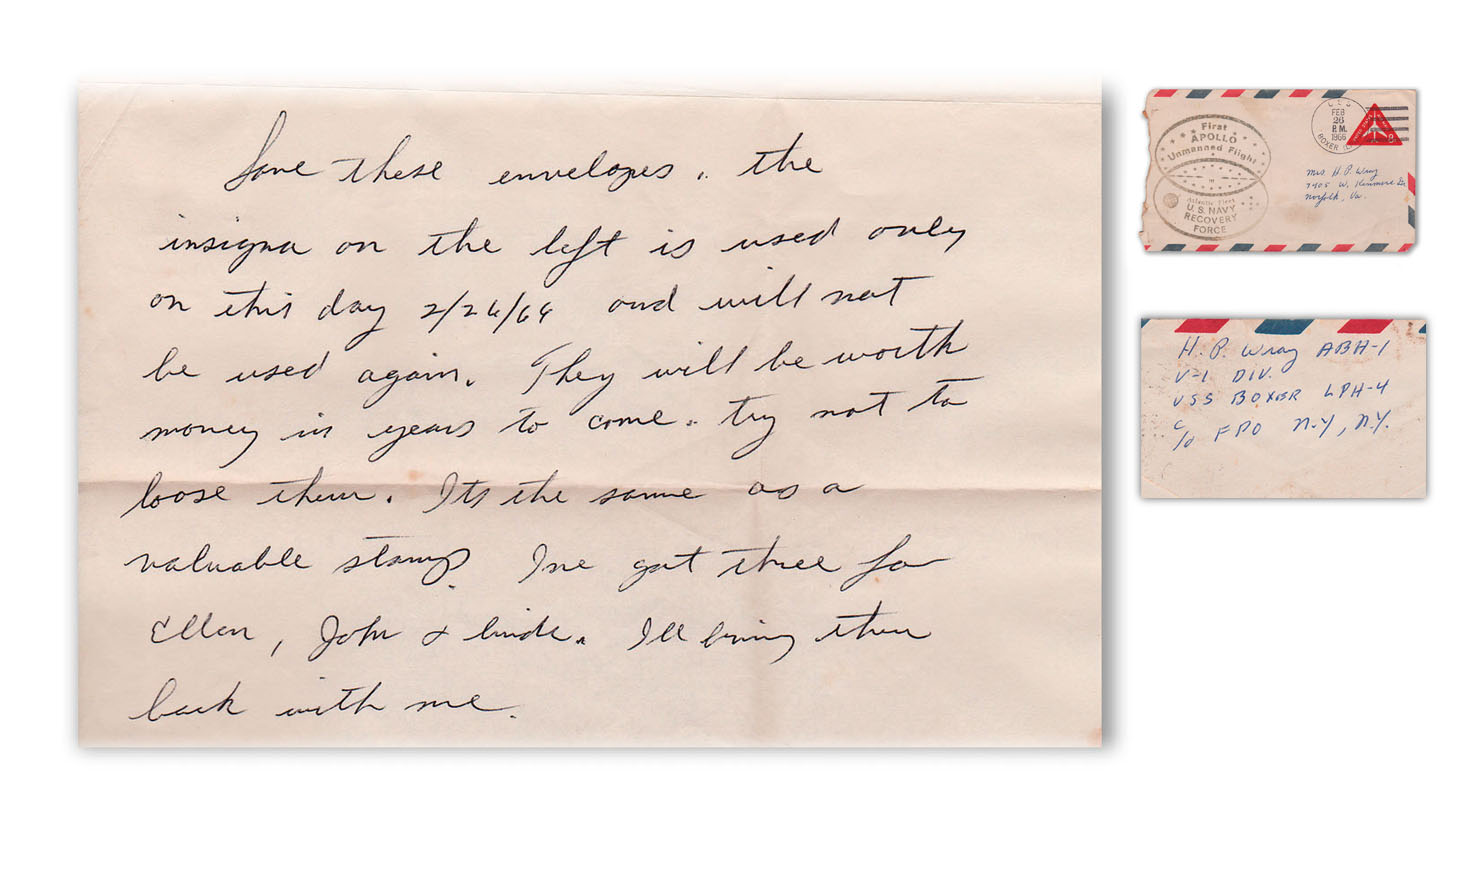 Save these envelopes. the
insigna on the left is used only
on this day 2/26/66 and will not
be used again. They will be worth
money in years to come. try not to
loose them. Its the same as a
valuable stamp. Ive got three for
Ellen, John &
I'll bring them
back with me.
First
APOLLO
Unmanned Flight
Atlantic Fleet
U.S. NAVY
RECOVERY
FORCE
FEB
26
P.M.
1966
BOXER
8
Mrs. H. P. Wray
7405 W. Kenmore Dr.
Norfolk, Va.
H. P. Wray ABH-1
V-1 DIV.
USS BOXER LPH-4
c/o FPO N.Y, N.Y.